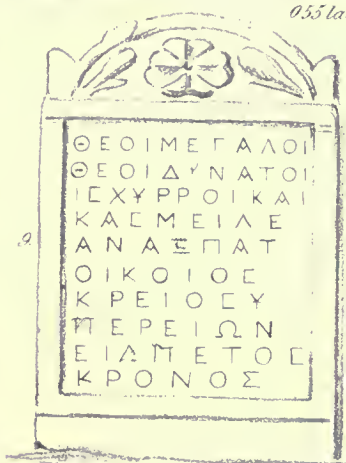 ΘΕΟΙΜΕΓΑΛΟΙ
ΘΕΟΙΔΥΝΑΤΟΙ
ΙϹΧΥΡΡΟΙΚΑΙ
ΚΑϹΜΕΙΛΕ
ΑΝΑΞΠΑΤ
ΟΙΚΟΙΟϹ
9.
ΚΡΕΙΟϹΥ
ΠΕΡΕΙΩΝ
ΕΙΑΠΕΤΟϹ
ΚΡΟΝΟΣ